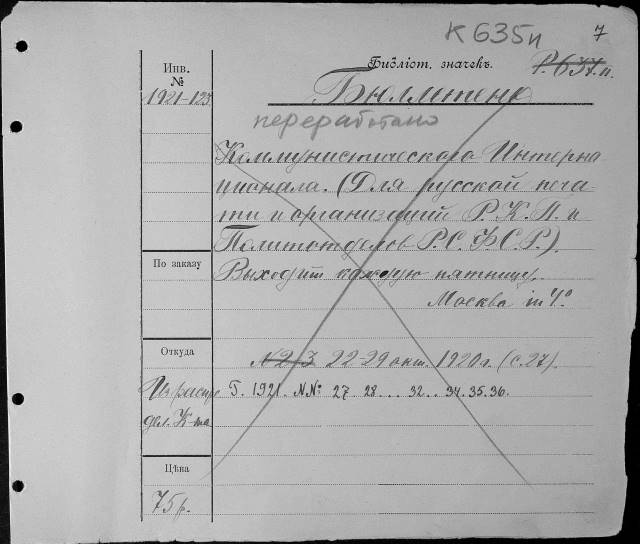 К 635п 7
Инв. №
Библіот. значекъ. Р.637.п.
1921-123
Бюллетень
переработано
Коммунистического Интерна
ционала. (Для русской печа-
ти и организаций Р.К.П. и
Политотделов Р.С.Ф.С.Р.).
По заказу
Выходит каждую пятницу.
Москва in 4°
Откуда
N 2-3 22-29 окт. 1920 г. (с. 27).
Из распре
дел. К-та
Г. 1921. NN: 27 28 .. 32 .. 34. 35. 36.
Цѣна
75 р.